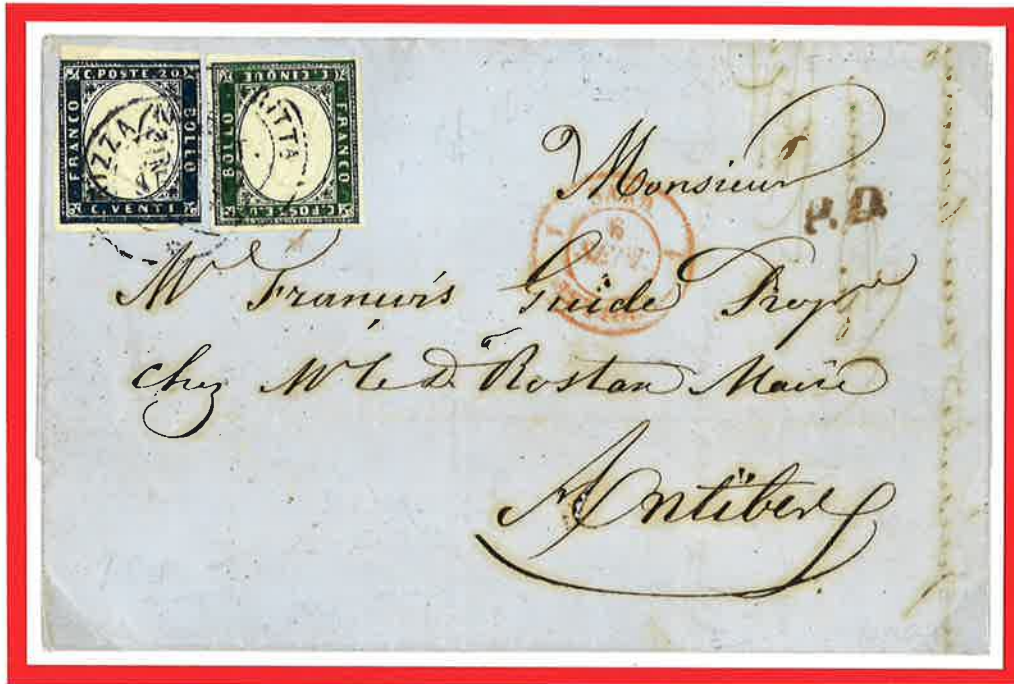 C. POSTE. 20
FRANCO
BOLLO
C. VENTI
C. CINQUE
FRANCO
BOLLO
C. POSTE. 5
IZZA
CITTA
P.D.
Monsieur
Mr François Guide Propre
chez Mr le D. Rostan Maire
Antibes